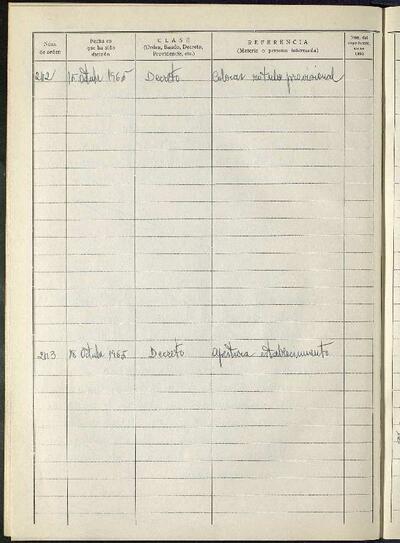 Núm. de orden
Fecha en que ha sido dictado
CLASE
(Orden, Bando, Decreto, Providencia, etc.)
REFERENCIA
(Materia o persona interesada)
212 15 Octubre 1965 Decreto Colocar rótulo provisional
213 18 Octubre 1965 Decreto Apertura establecimiento